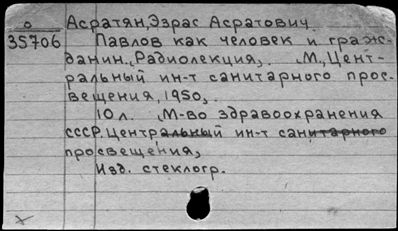 о Асратян, Эзрас Асратович
35706 Павлов как человек и граж-
данин. (Радиолекция). М., Цент-
ральный ин-т санитарного прос-
вещения, 1950,.
10 л. (М-во здравоохранения
СССР. Центральный ин-т санитарного
просвещения),
Изд. стеклогр.